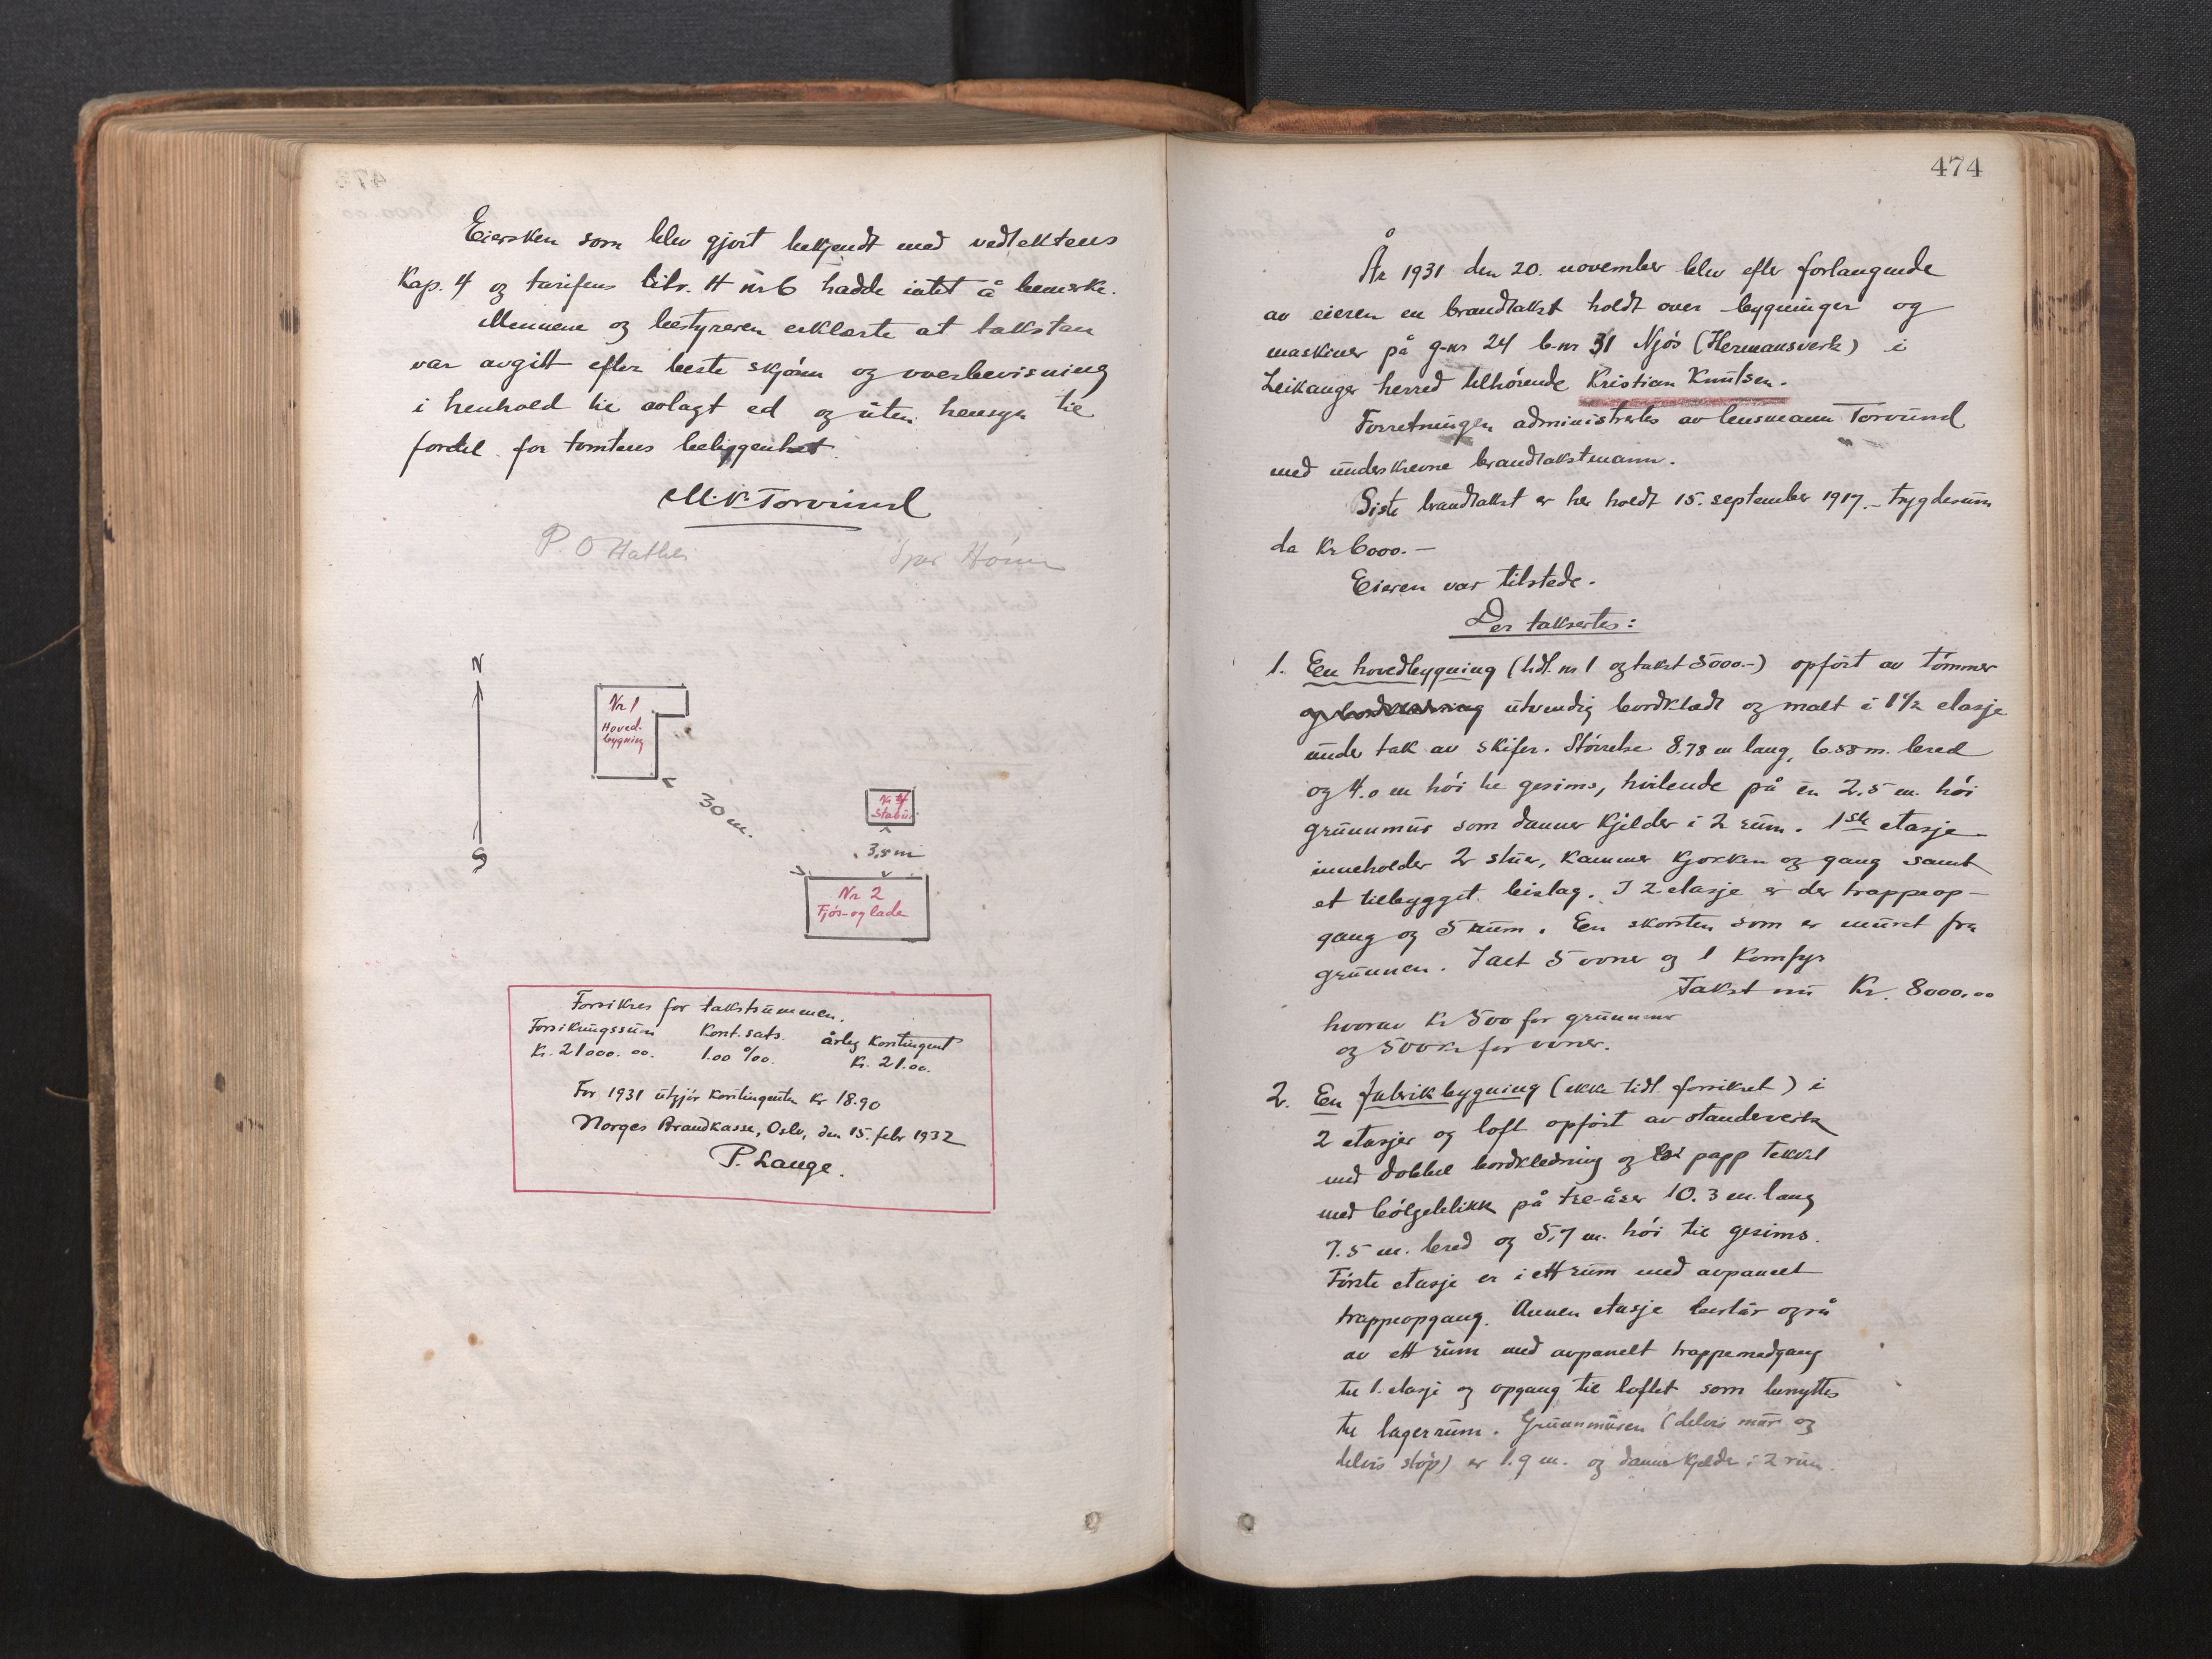 Eiersken som blev gjort bekjendt med vedtektens
Kap. 4 og tarifens litr. H nr 6 hadde intet å bemerke.
Mennene og bestyreren erklærte at taksten
var avgitt efter beste skjønn og overbevisning
i henhold til avlagt ed og uten hensyn til
fordel for tomtens beliggenhet.
M.K. Torvund
P. O Hatlei
Hønsi
N
S
Nr 1
Hoved-
bygning
30 m.
Nr 4
Stabur
3,5 m
Nr 2
Fjös-og lade
Forsikres for takstsummen.
Forsikringssum Kont. sats. årlig kontingent
Kr. 21000.00. 1.00 ‰. Kr. 21.00.
For 1931 utgjör kontingenten kr 18.90
Norges Brandkasse, Oslo, den 15. febr 1932
P. Lange.
474
År 1931 den 20. november blev efter forlangende
av eieren en brandtakst holdt over bygninger og
maskiner på g-nr 24 b-nr 31 Njös (Hermansverk) i
Leikanger herred tilhörende Kristian Knutsen.
Forretningen administrertes av lensmann Torvund
med underskrevne brandtakstmenn.
Siste brandtakst er her holdt 15. september 1917. – trygdesum
da Kr 6000.–
Eieren var tilstede.
Der taksertes:
1. En hovedbygning (tidl. nr 1 og takst 5000.–) opfört av tömmer
utvendig bordklædt og malt i 1 1/2 etasje
under tak av skifer. Störrelse 8.78 m lang, 6.58 m. bred
og 4.0 m höi til gesims, hvilende på en 2.5 m. höi
grunnmur som danner kjelder i 2 rum. 1ste etasje
inneholder 2 stuer, kammer kjøkken og gang samt
et tilbygget bislag. I 2 etasje er der trappeop-
gang og 5 rum. En skorsten som er muret fra
grunnen. I alt 5 ovner og 1 komfyr
Takst nu Kr. 8000.00
hvorav Kr 500 for grunnmur
og 500 kr for ovner.
2. En fabrikbygning (ikke tidl. forsikret) i
2 etasjer og loft opfört av stenderverk
med dobbel bordkledning og papp tekket
med bölgeblikk på tre-åser 10.3 m. lang
7.5 m. bred og 5,7 m. höi til gesims.
Förste etasje er i ett rum med avpanelt
trappeopgang. Annen etasje består også
av ett rum med avpanelt trappenedgang
til 1. etasje og opgang til loftet som benyttes
til lagerrum. Grunnmuren (delvis mur og
delvis støp) er 1.9 m. og danner kjelder i 2 rum.